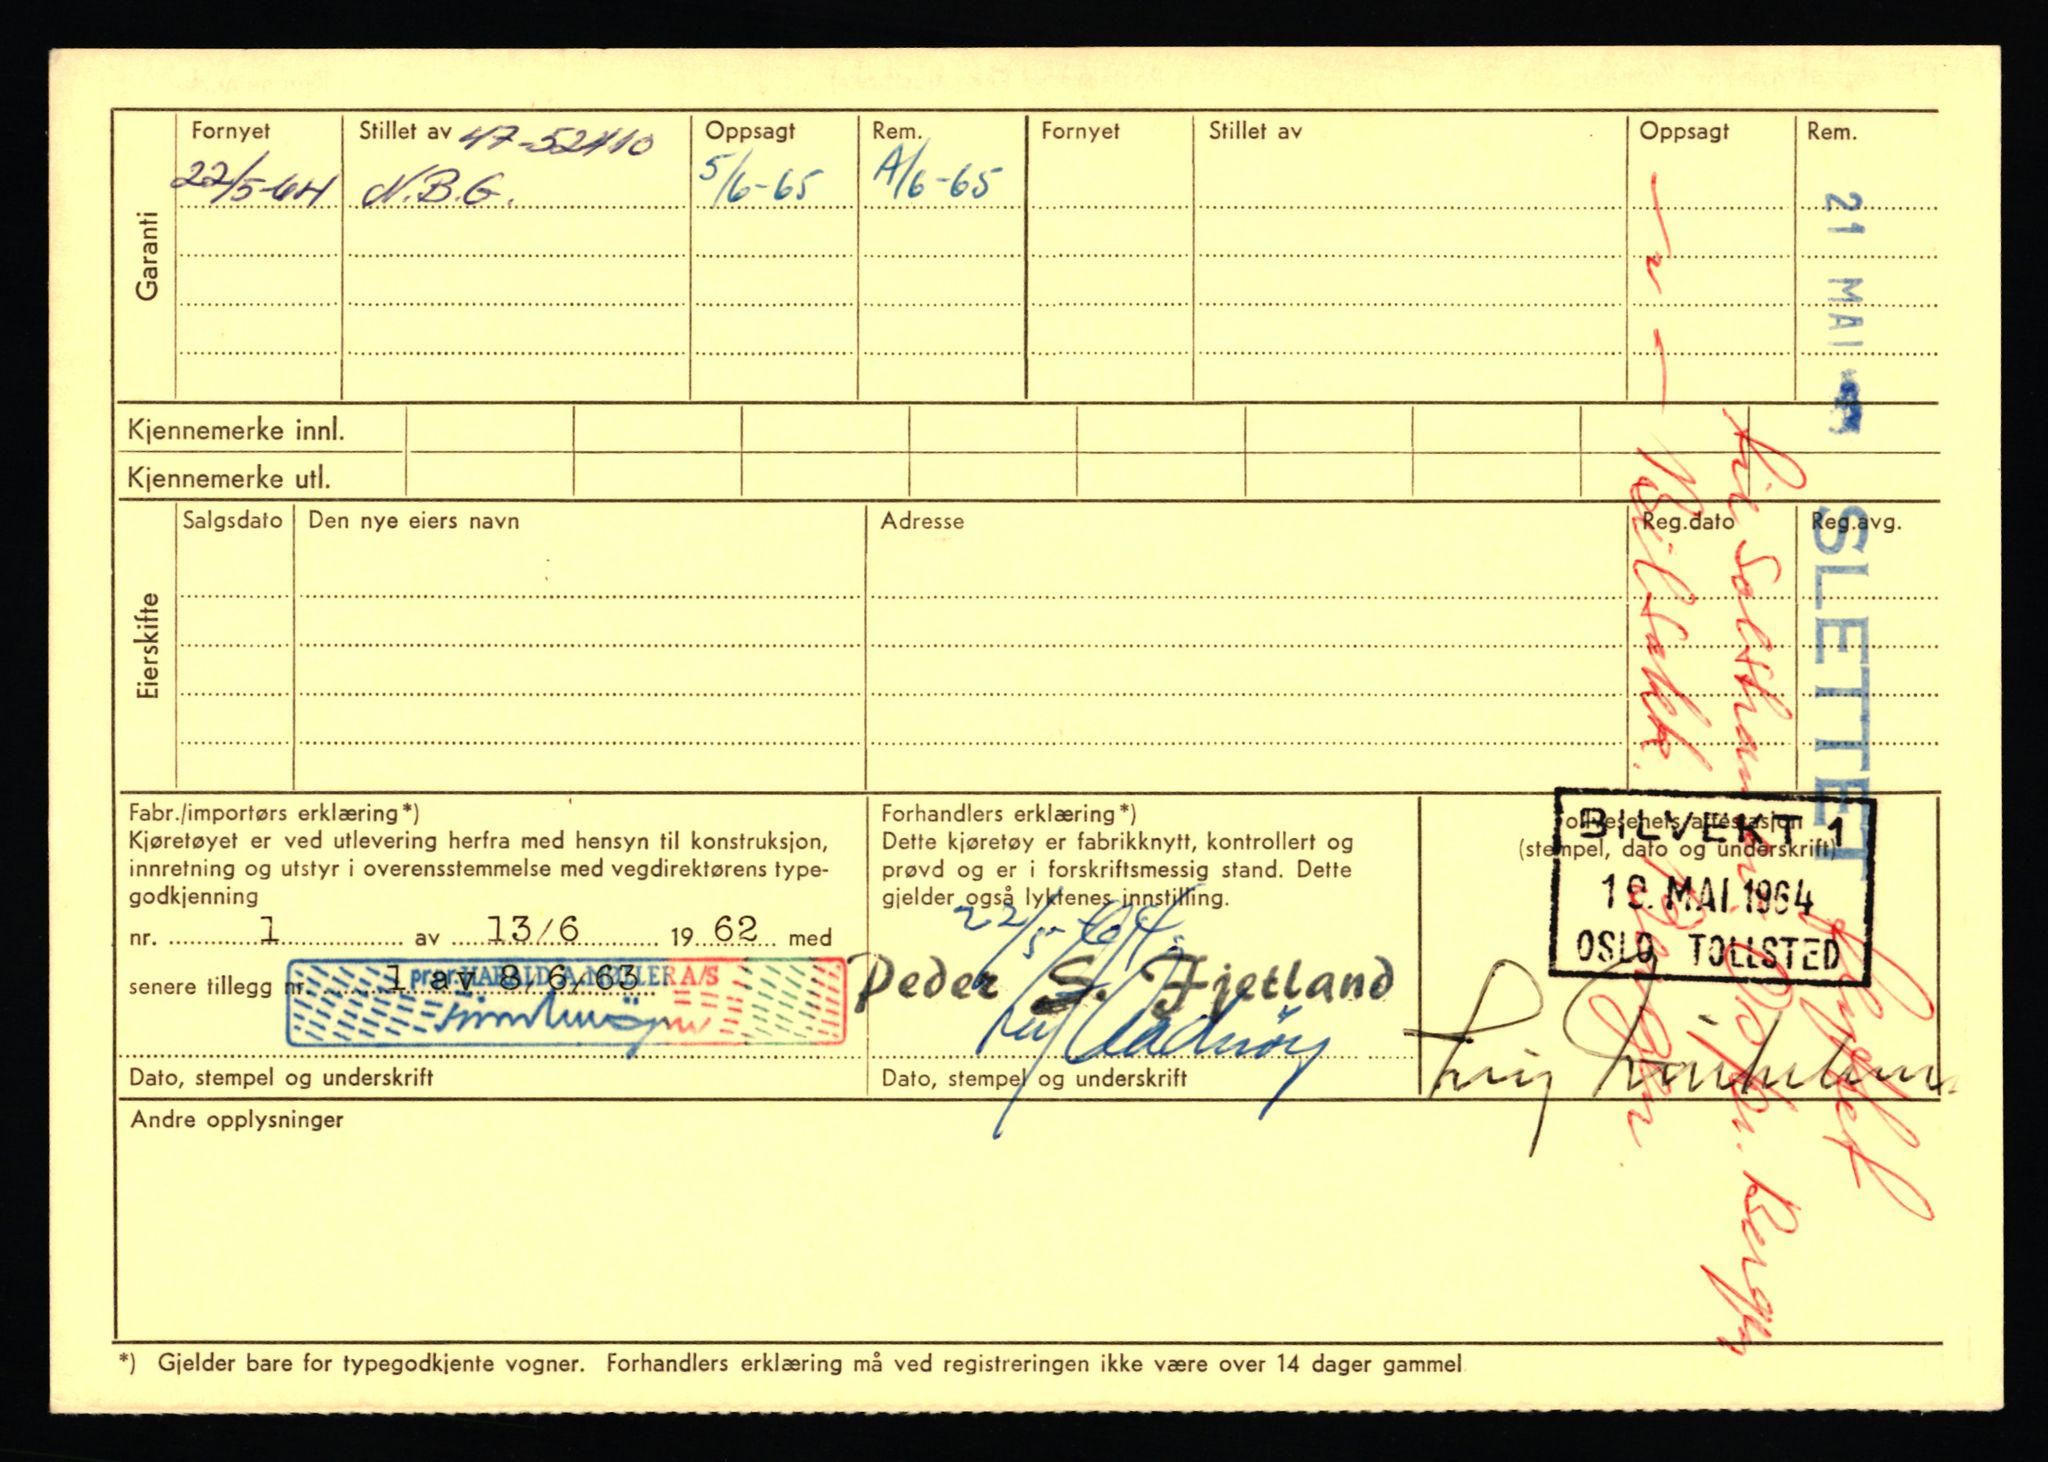 Garanti
Fornyet Stillet av 47-52410 Oppsagt Rem. Fornyet Stillet av Oppsagt Rem.
22/5-64 N.B.G. 5/6-65 A/6-65
21 MAI
Kjennemerke innl.
Kjennemerke utl.
Eierskifte
Salgsdato Den nye eiers navn Adresse Reg.dato Reg.avg.
SLETTET
Fabr./importørs erklæring*)
Kjøretøyet er ved utlevering herfra med hensyn til konstruksjon,
innretning og utstyr i overensstemmelse med vegdirektørens type-
godkjenning
nr. 1 av 13/6 19 62 med
senere tillegg nr. 1 av 8/6/63
pr.pr. HARALD A. MØLLER A/S
Dato, stempel og underskrift
Forhandlers erklæring*)
Dette kjøretøy er fabrikknytt, kontrollert og
prøvd og er i forskriftsmessig stand. Dette
gjelder også lyktenes innstilling.
22/5-64
Peder S. Fjetland
Dato, stempel og underskrift
Tollvesenets attestasjon
(stempel, dato og underskrift)
BILVEKT 1
19. MAI 1964
OSLO TOLLSTED
Andre opplysninger
*) Gjelder bare for typegodkjente vogner. Forhandlers erklæring må ved registreringen ikke være over 14 dager gammel